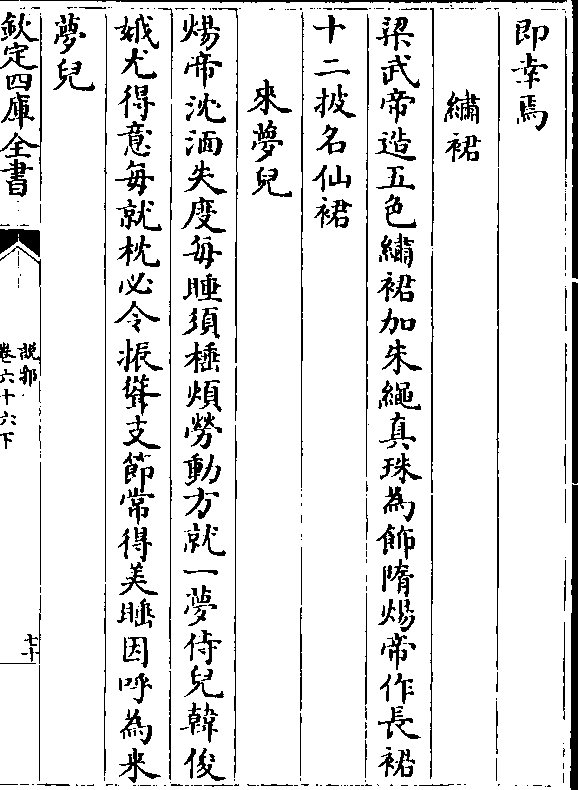 即幸焉
繡裙
梁武帝造五色繡裙加朱繩真珠為飾隋煬帝作長裙
十二披名仙裙
來夢兒
煬帝沈湎失度每睡須揺頓勞動方就一夢侍兒韓俊
娥尤得意每就枕必令振聳支節常得美睡因呼為来
夢兒
欽定四庫全書
說郛
卷六十六下
七十